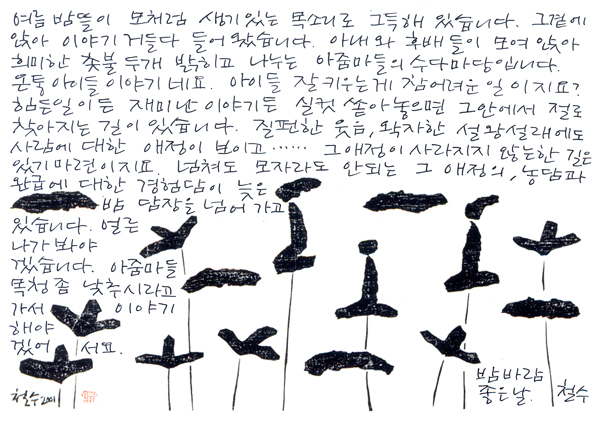 여름 밤뜰이 모처럼 생기있는 목소리로 그득해 있습니다. 그곁에
앉아 이야기 거들다 들어왔습니다. 아내와 후배들이 모여앉아
희미한 촛불 두개 밝히고 나누는 아줌마들의 수다마당입니다.
온통 아이들 이야기네요. 아이들 잘 키우는게 참 어려운 일이지요?
힘든일이든 재미난 이야기든 실컷 쏟아놓으면 그안에서 절로
찾아지는 길이 있습니다. 질펀한 웃음, 왁자한 설왕설래에도
사람에 대한 애정이 보이고…… 그애정이 사라지지 않는한 길은
있기 마련이지요. 넘쳐도 모자라도 안되는 그 애정의, 농담과
완급에 대한 경험담이 늦은
밤 담장을 넘어 가고
있습니다. 얼른
나가 봐야
겠습니다. 아줌마들
목청 좀 낮추시라고
가서 이야기
해야
겠어서요.
밤바람
좋은날. 철수
철수